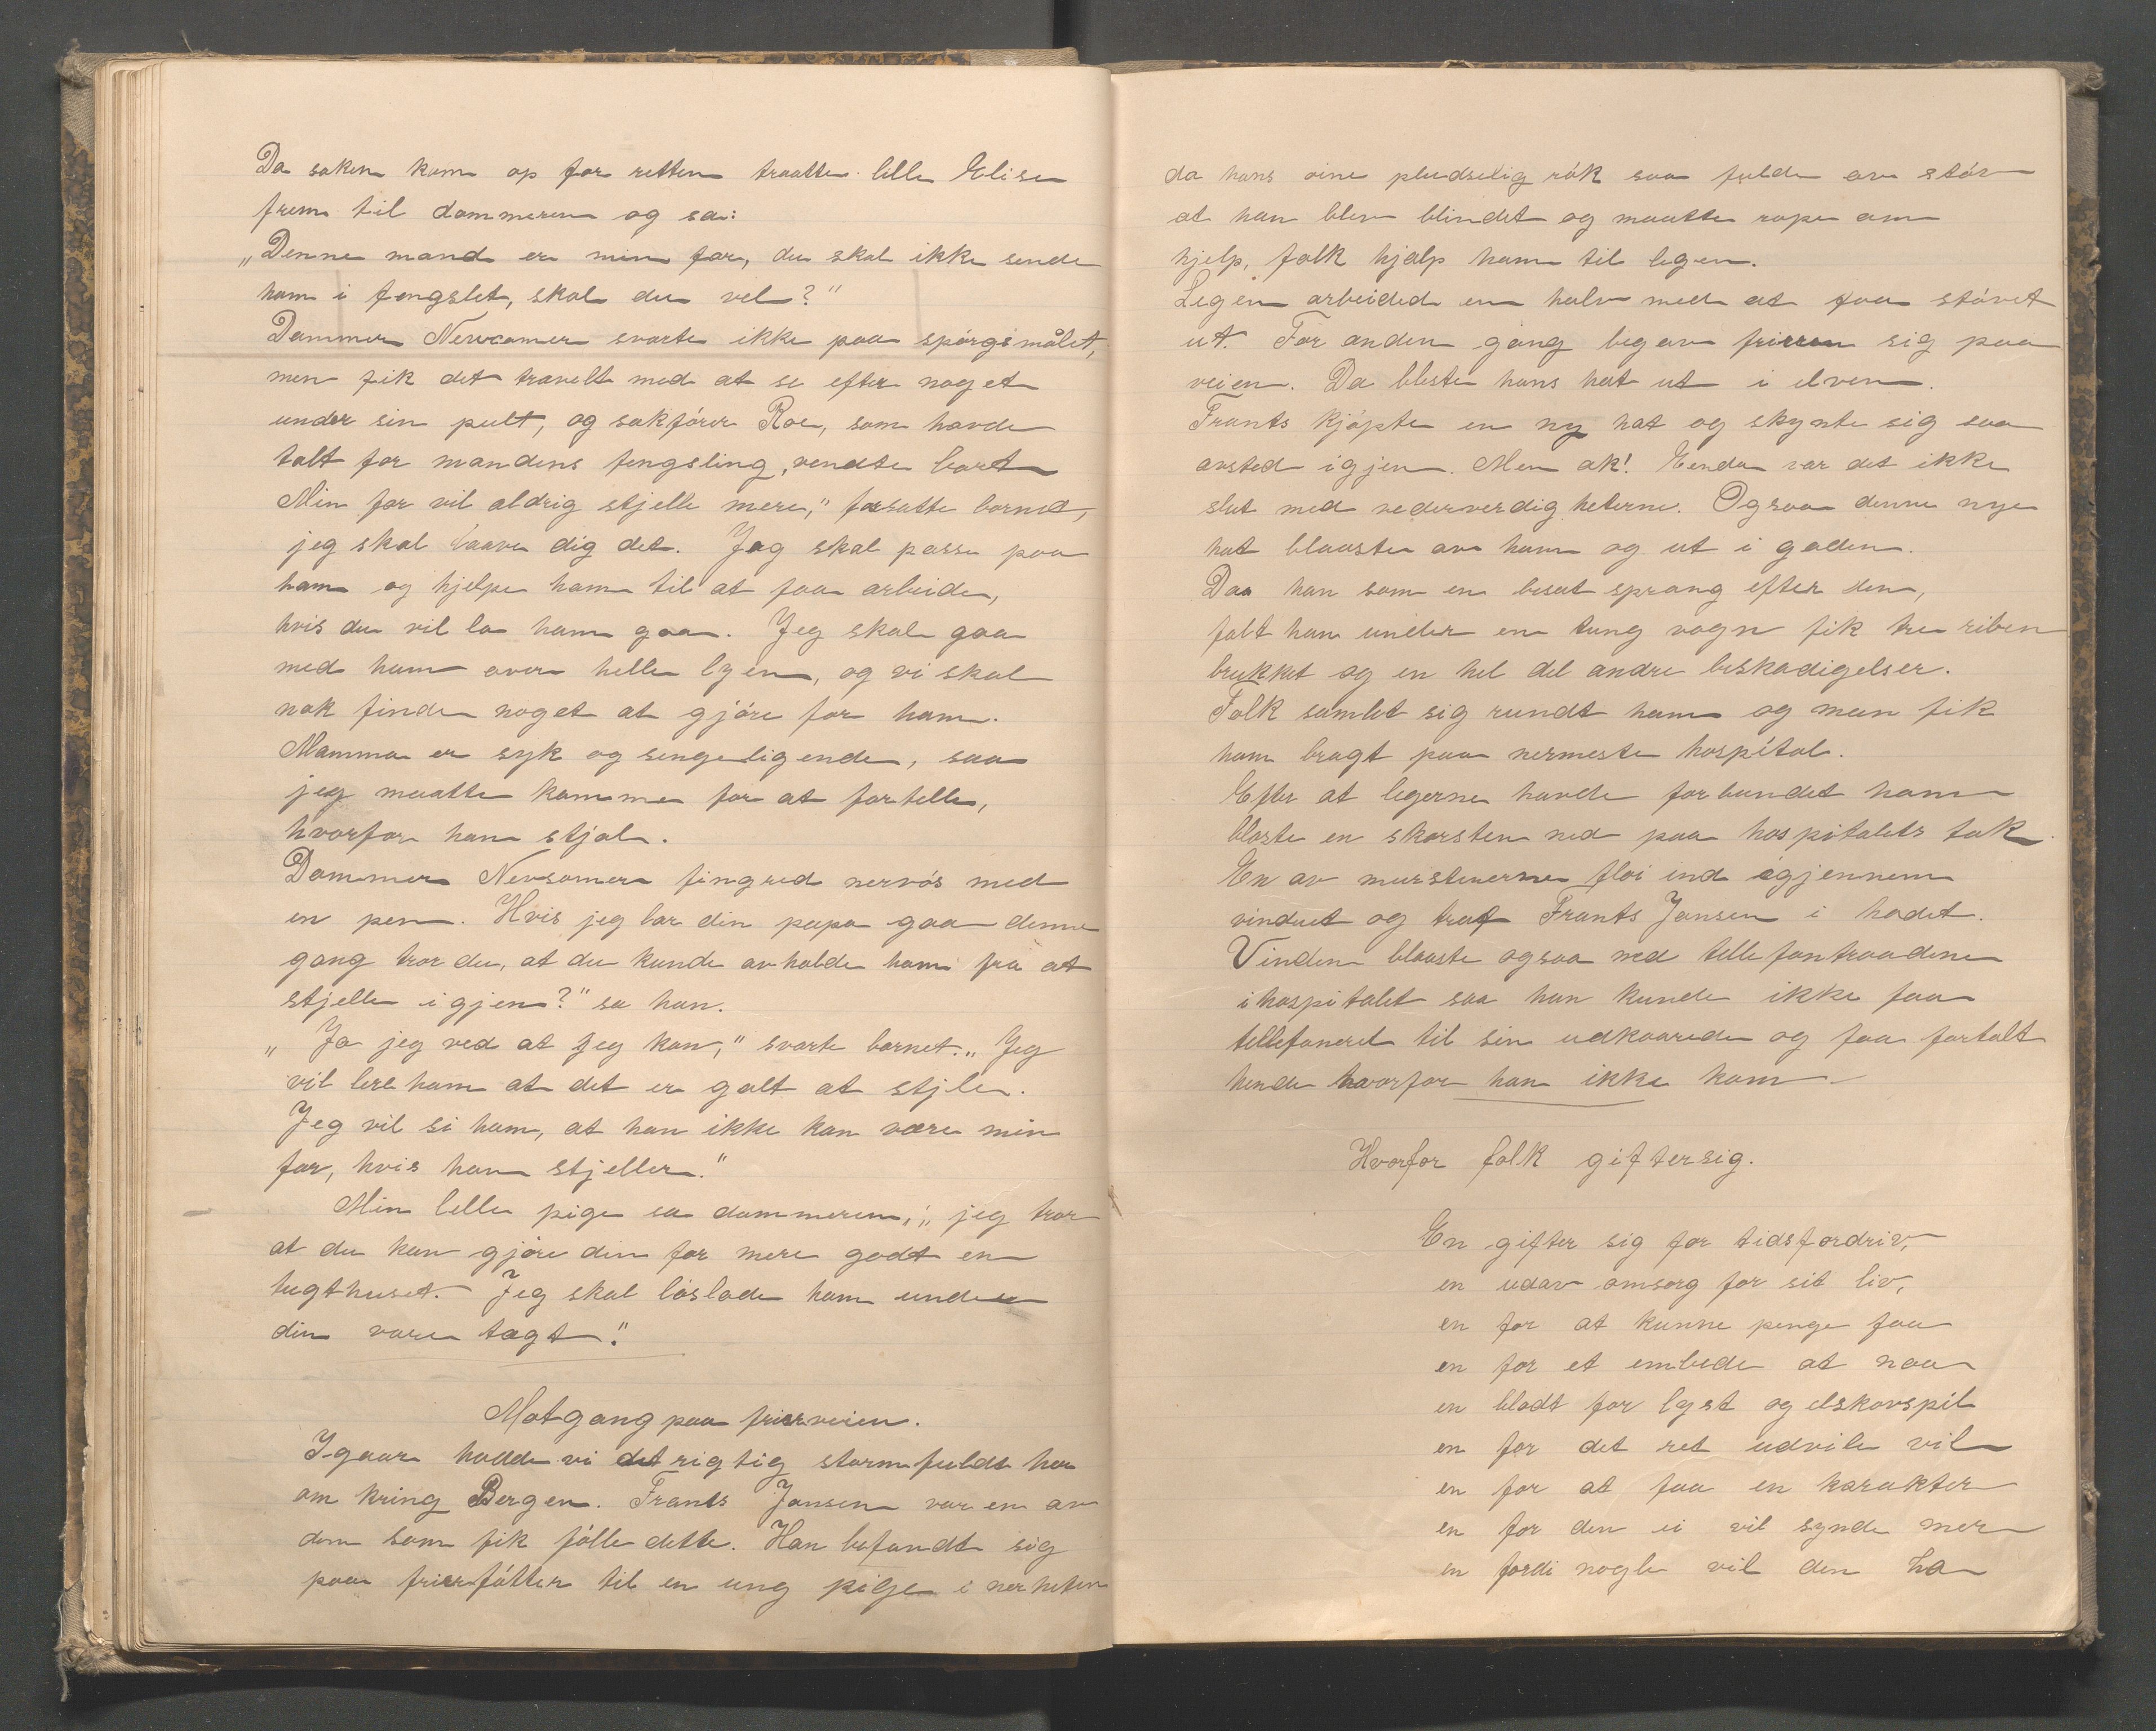 Da saken kom op for retten traatte lille Elise
frem til dommeren og sa:
„Denne mand er min far, du skal ikke sende
ham i fengslet, skal du vel?"
Dommer Newcomer svarte ikke paa spörgsmålet,
men fik det travelt med at se efter noget
under sin pult, og sakförer Roe, som havde
talt for mandens fengsling, vendte bort
Min far vil aldrig stjelle mere," forsatte barnet,
jeg skal laave dig det. Jeg skal passe paa
ham og hjelpe ham til at faa arbeide,
hvis du vil la ham gaa. Jeg skal gaa
med ham over helle byen, og vi skal
nok finde noget at gjöre for ham.
Mamma er syk og sengeligende, saa
jeg maatte komme for at fortelle,
hvorfor han stjal.
Dommer Newsomer fingred nervös med
en pen. Hvis jeg lar din papa gaa denne
gang tror du, at du kunde avholde ham fra at
stjelle igjen?" sa han.
„Ja jeg ved at jeg kan," svarte barnet. „Jeg
vil lere ham at det er galt at stjle.
Jeg vil si ham, at han ikke kan være min
far, hvis han stjeller."
Min lille pige sa dommeren, „jeg tror
at du kan gjöre din far mere godt en
tugthuset. Jeg skal löslade ham under
din vare tagt."
Motgang paa frierveien.
Igaar hadde vi det rigtig stormfuldt her
om kring Bergen. Frants Jansen var en av
dem som fik fölle dette. Han befandt sig
paa frierfötter til en ung pige i nerheten
da hans öine pludselig rök saa fulde av stöv
at han blev blindet og maatte rope om
hjelp, folk hjalp ham til legen.
Legen arbeided en halv med at faa stövet
ut. For anden gang begav frieren sig paa
veien. Da bleste hans hat ut i elven.
Frants kjöpte en ny hat og skynte sig saa
avsted igjen. Men ak! Enda var det ikke
slut med vederverdigheterne. Ogsaa denne nye
hat blaaste av ham og ut i gaden.
Daa han som en besat sprang efter den,
falt han under en tung vogn fik tre riben
brukket og en hel del andre beskadigelser.
Folk samlet sig rundt ham og man fik
ham bragt paa nermeste hospital.
Efter at legerne havde forbundet ham
blaste en skorsten ned paa hospitalets tak.
En av murstenerne flöi ind igjennem
vinduet og traf Frants Jansen i hodet.
Vinden blaaste ogsaa ned tellefontraadene
i hospitalet saa han kunde ikke faa
tellefoneret til sin udkaarede og faa fortalt
hende hvorfor han ikke kom.
Hvorfor folk giftersig.
En gifter sig for tidsfordriv,
en udav omsorg for sit liv,
en for at kunne penge faa
en for et embede at naa
en blodt for lyst og elskovspil
en for det ret udvile vil
en for at faa en karakter
en for den ei vil synde mer
en fordi nogle vil den ha